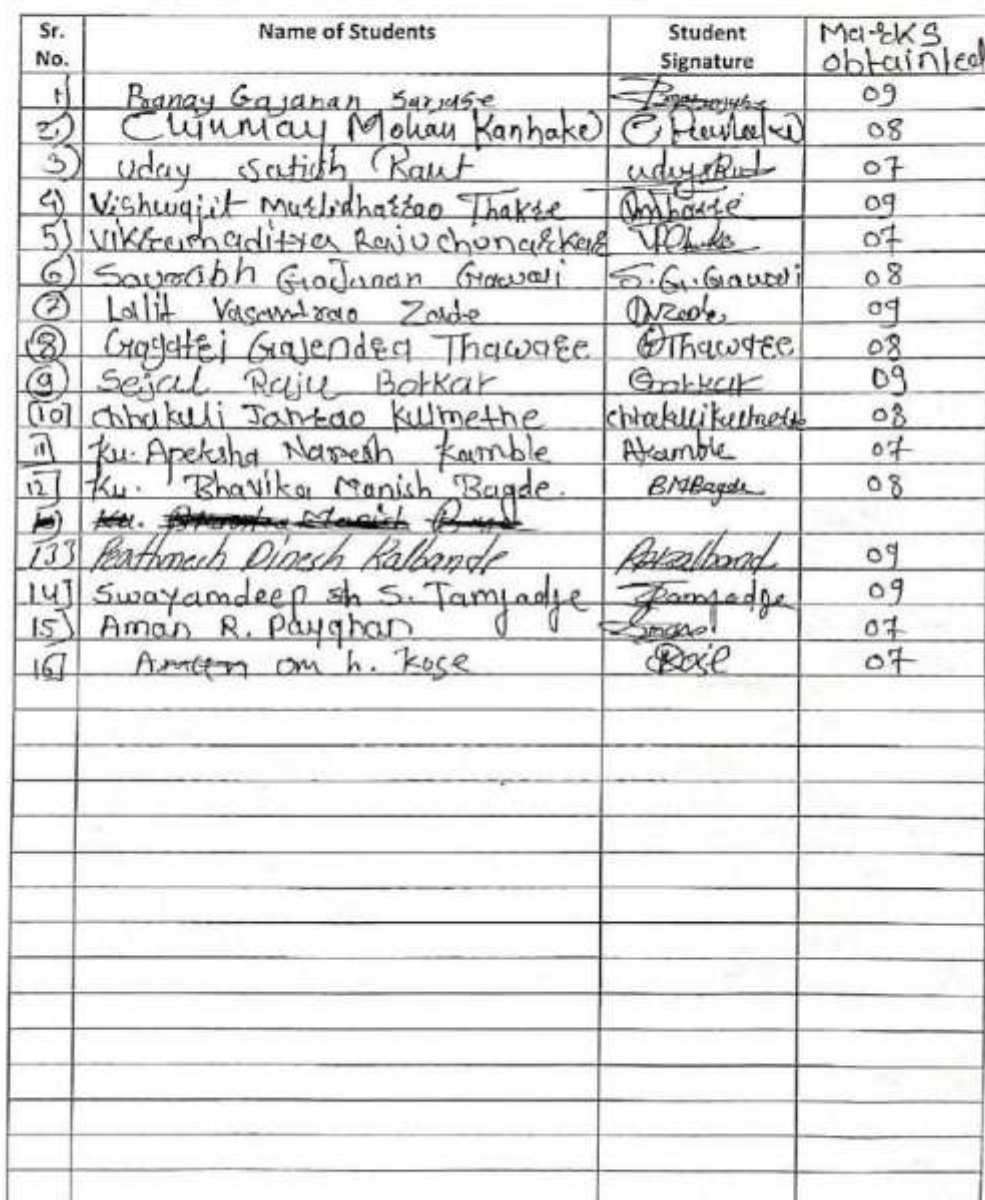 Sr. No. Name of Students Student Signature Marks obtainted
1) Pranay Gajanan Sarjase 09
2) Chinmay Mohan Kanhake 08
3) Uday Satish Raut udaySRaut 07
4) Vishwajit Murlidharrao Thakre 09
5) Vikramaditya Raju chunarkar 07
6) Sourabh Gajanan Gawali S.G.Gawali 08
7 Lalit Vasantrao Zade 09
8 Gayatri Gajendra Thawaree Thawaree 08
9 Sejal Raju Botkar 09
10] chhakuli Janrao Kulmethe chhakulikulmethe 08
11 Ku. Apeksha Naresh Kamble AKamble 07
12] Ku. Bhavika Manish Bagde. BMBagde 08
Ku.
133 Prathmesh Dinesh Kalbande 09
14] Swayamdeep sh S. Tamgadge Tamgadge 09
15) Aman R. Payghan 07
16] om h. Kose 07